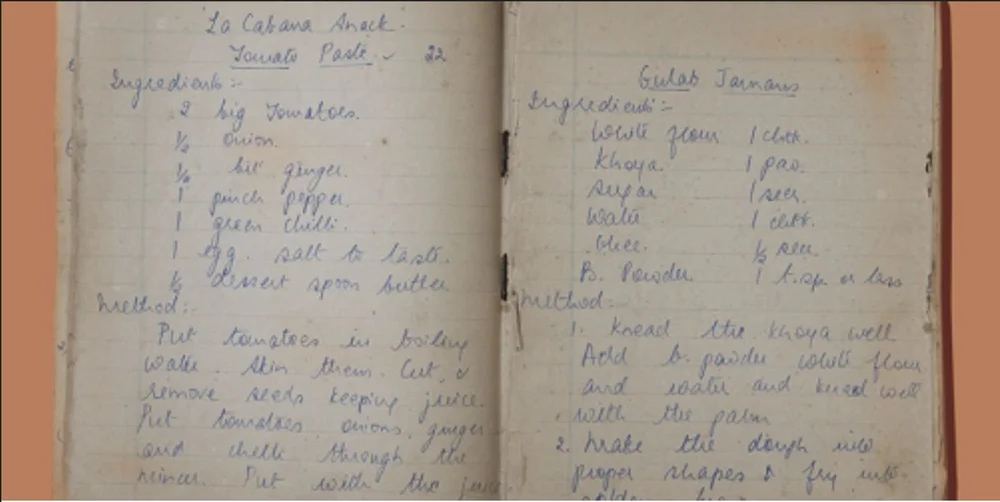 La Cabana Snack.
Tomato Paste 22
Ingredients:-
2 big Tomatoes.
1/2 onion.
1/2 bit ginger.
1 pinch pepper.
1 green chilli.
1 egg. salt to taste.
1/2 dessert spoon butter
Method:-
Put tomatoes in boiling
water. Skin them. Cut &
remove seeds keeping juice.
Put tomatoes onions, ginger
and chilli through the
mincer. Put with the juice
Gulab Jamans
Ingredients:-
White flour 1 chtk.
Khoya 1 pao.
Sugar 1 seer.
Water 1 chtk.
Ghee. 1/2 seer.
B. Powder 1 t.sp. or less
Method-
1. Knead the khoya well
Add b. powder white flour
and water and knead well
with the palm
2. Make the dough into
proper shapes & fry into
golden